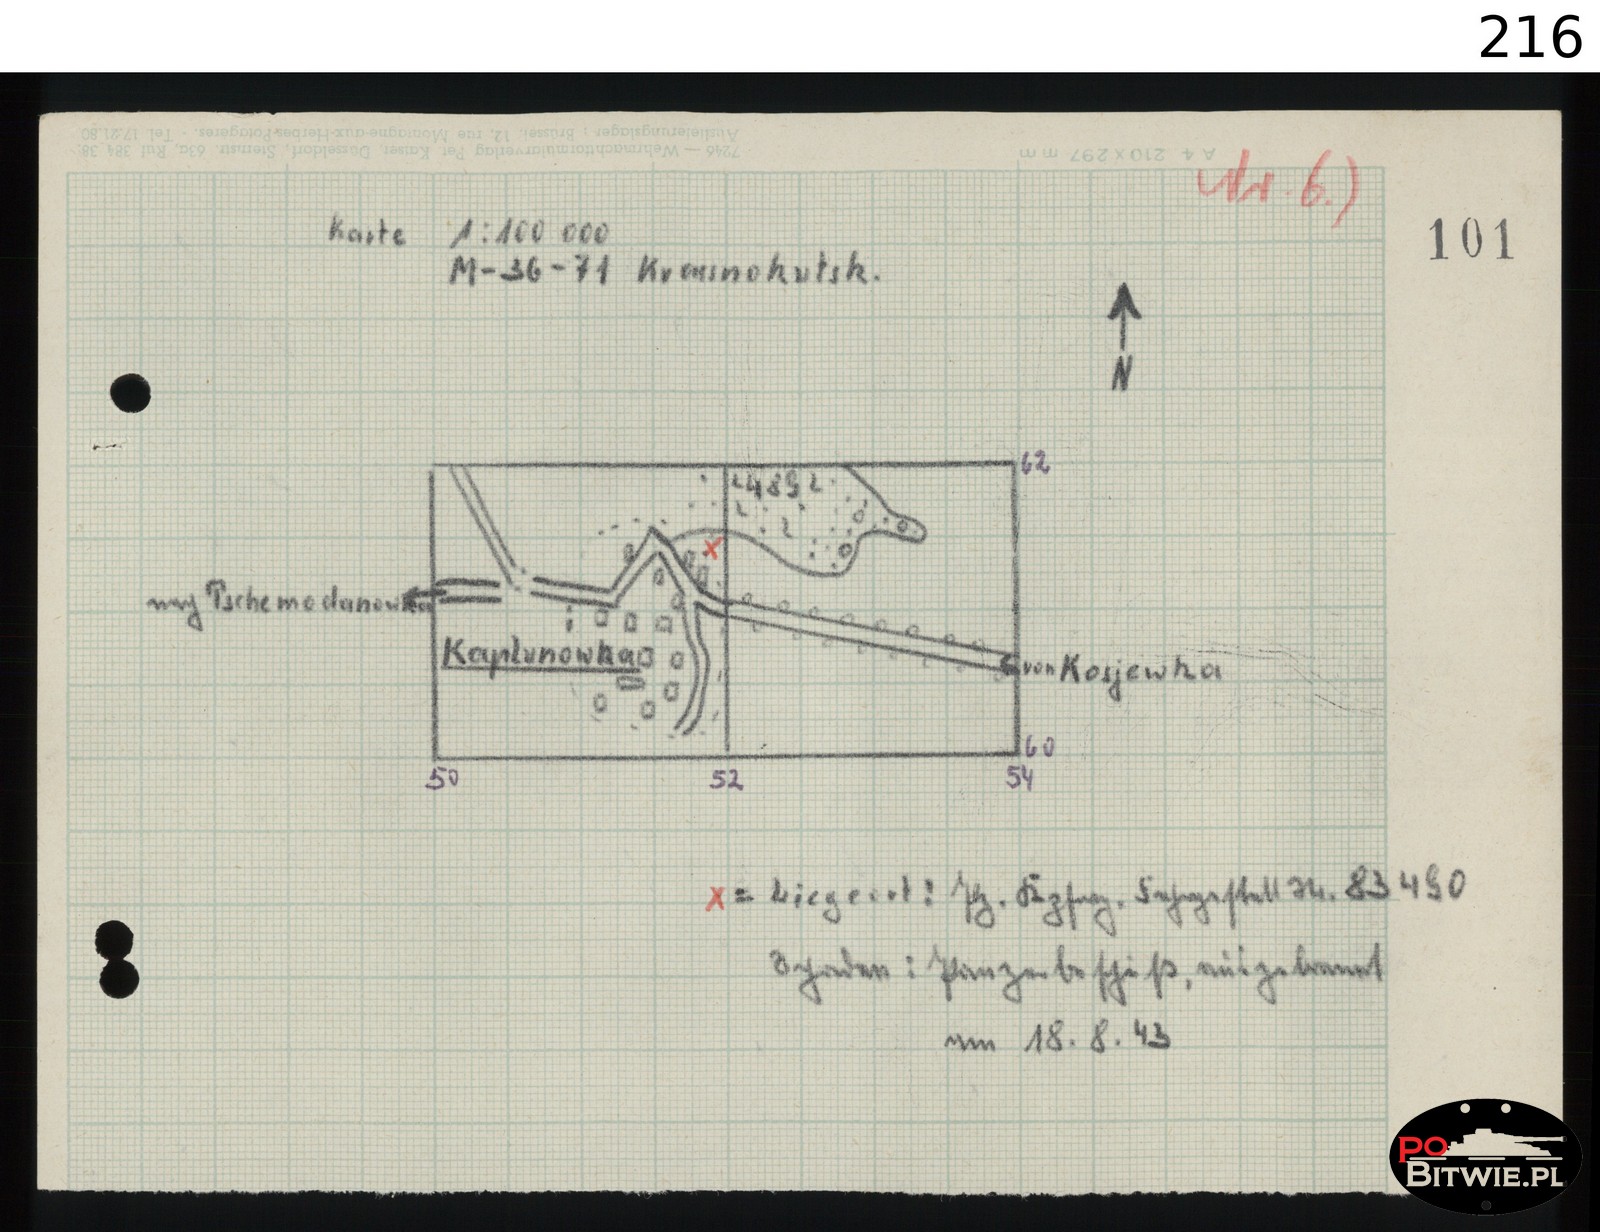 216
7246 — Wehrmachtformularverlag Pet. Kaiser, Düsseldorf, Sternstr. 63a, Ruf 384 38.
Auslieferungslager: Brüssel, 12, rue Montagne-aux-Herbes-Potagères. - Tel. 17.21.80
A 4 210 × 297 mm
Nr. 6.)
101
Karte 1:100 000
M-36-71 Krasnokutsk.
N
62
nach Tschemodanowka
Kaplunowka
von Kosjewka
60
50 52 54
x = Liegeort: Pz. Kpfwg. Fahrgestell Nr. 83490
Schaden: Panzerbeschuß, ausgebrannt
am 18. 8. 43
PO
BITWIE.PL